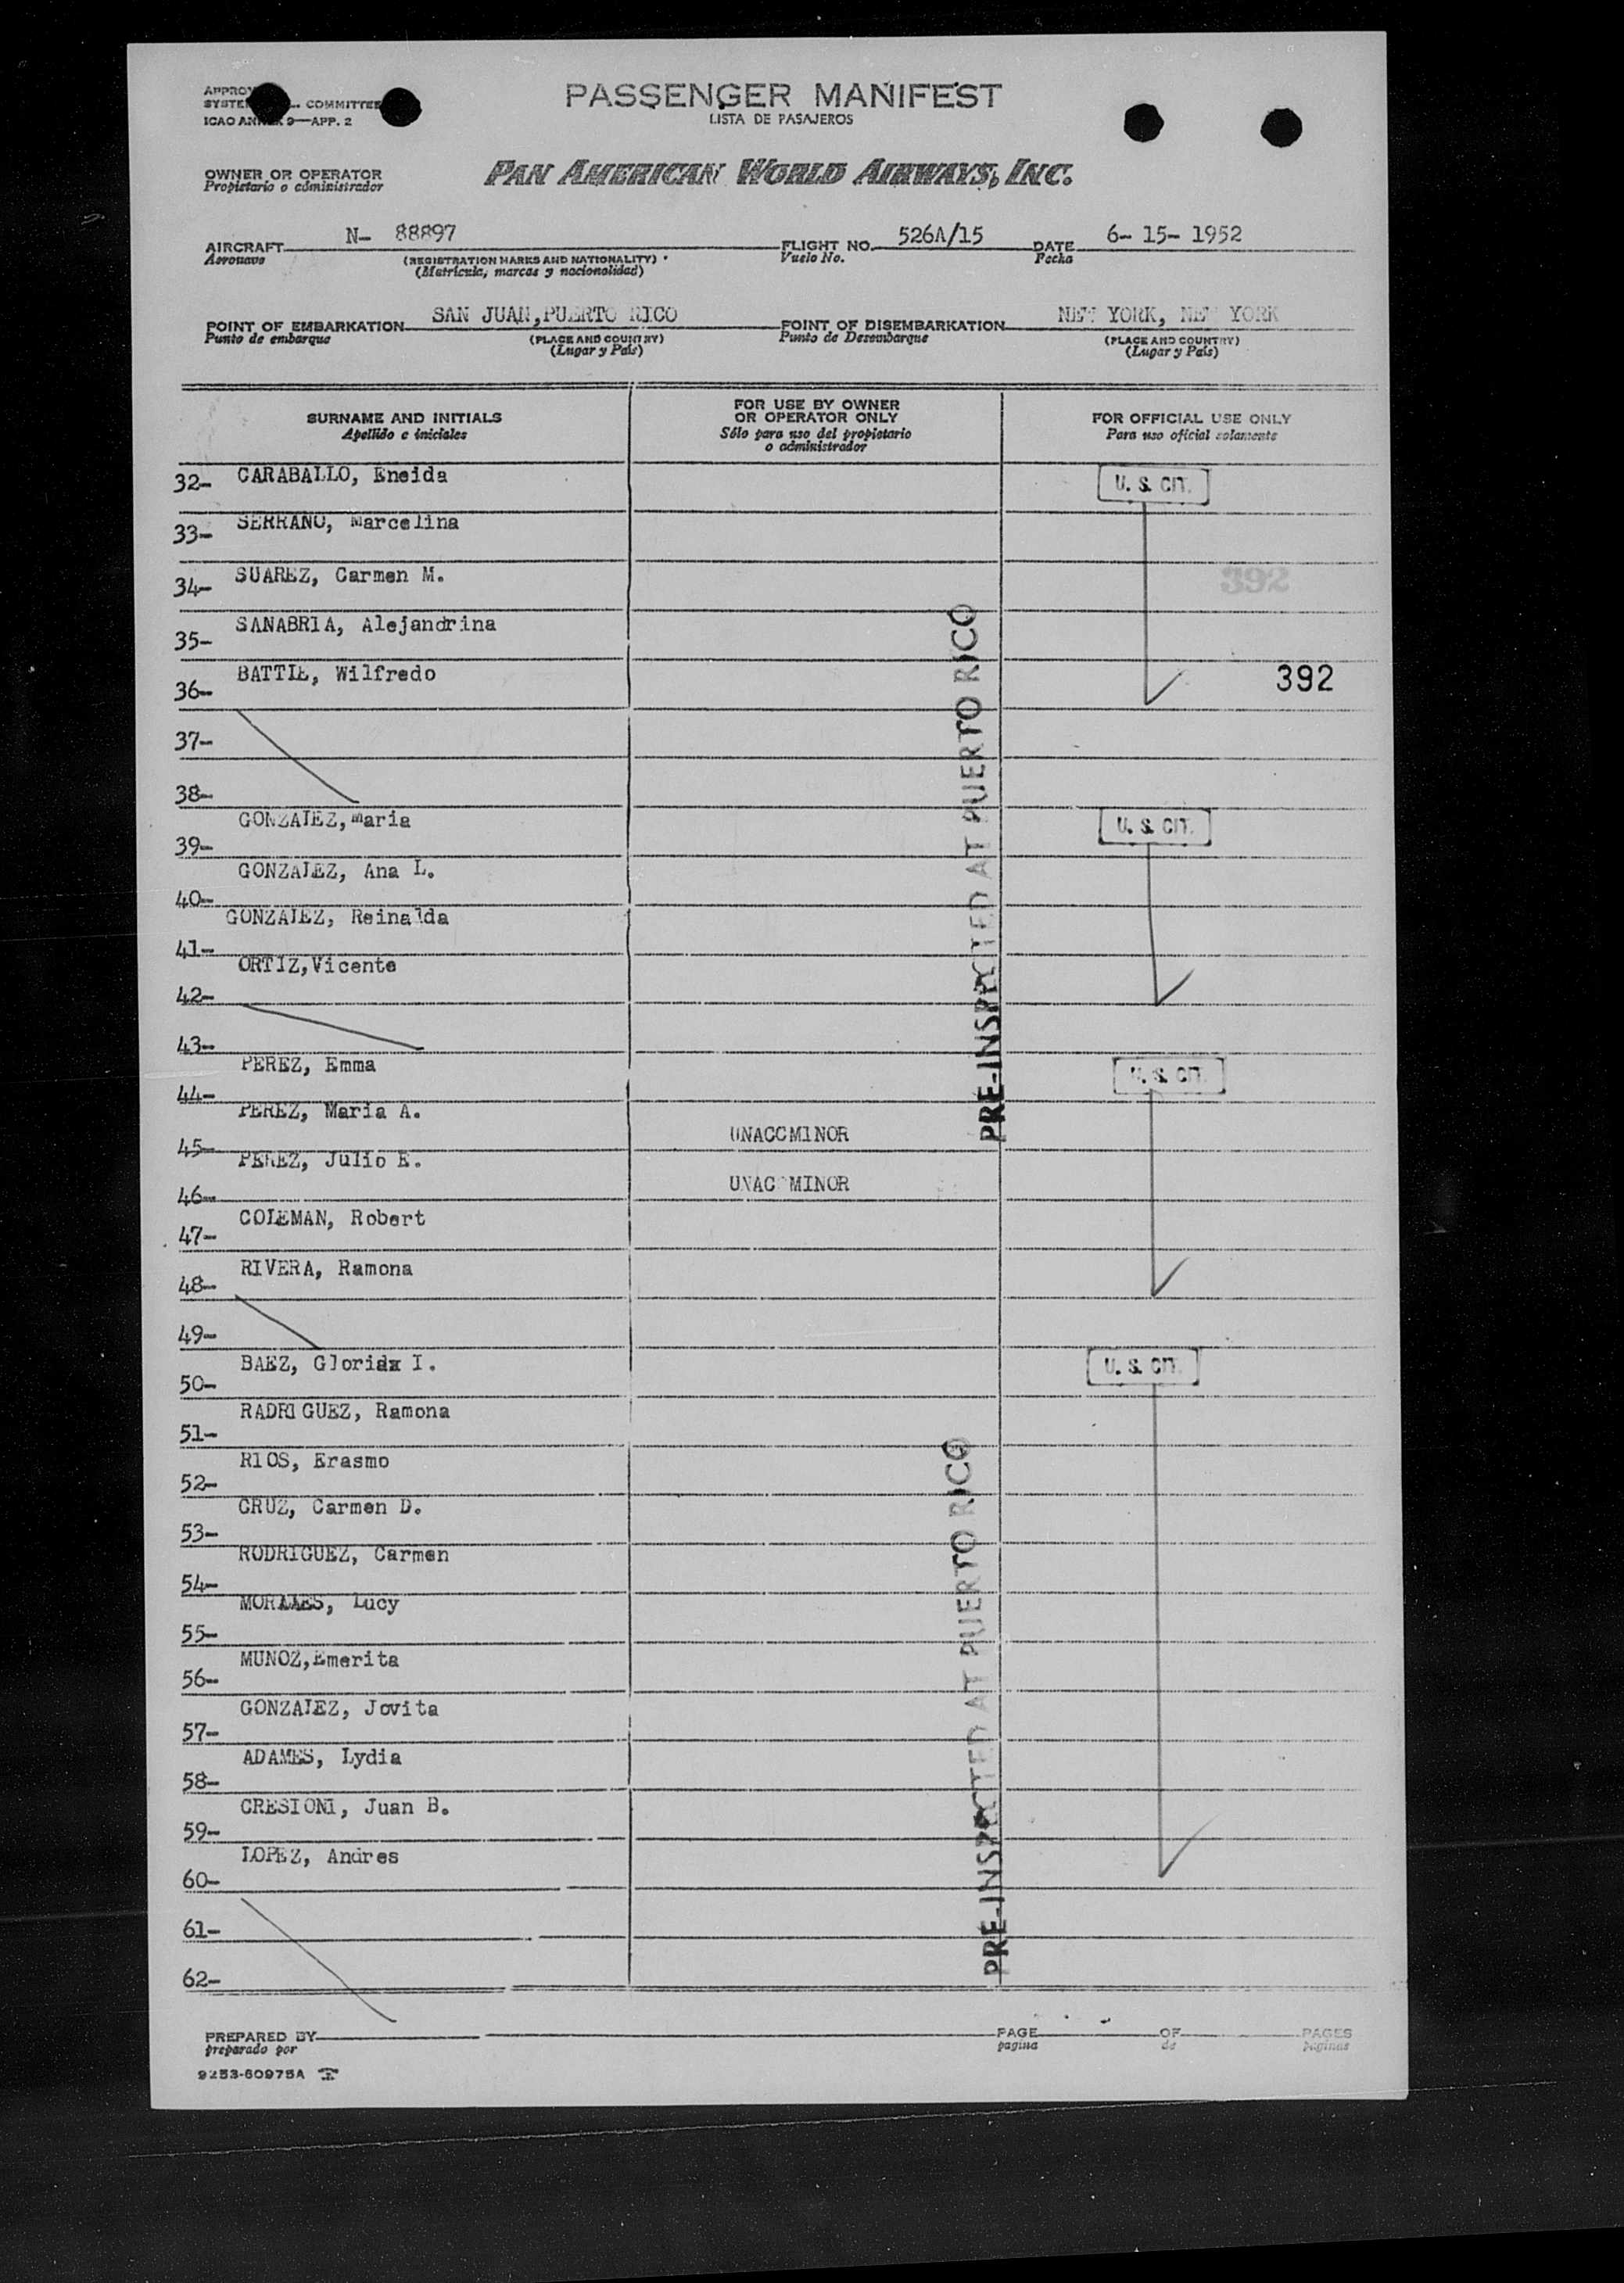 PASSENGER MANIFEST
LISTA DE PASAJEROS
COMMITTEE
ICAO 9—APP. 2
OWNER OR OPERATOR
Propietario o administrador
PAN AMERICAN WORLD AIRWAYS, INC.
AIRCRAFT N- 88897 FLIGHT NO. 526A/15 DATE 6- 15- 1952
Aeronave (REGISTRATION MARKS AND NATIONALITY) Vuelo No. Fecha
(Matricula, marcas y nacionalidad)
POINT OF EMBARKATION SAN JUAN,PUERTO RICO POINT OF DISEMBARKATION NEW YORK, NEW YORK
Punto de embarque (PLACE AND COUNTRY) Punto de Desembarque (PLACE AND COUNTRY)
(Lugar y País) (Lugar y País)
SURNAME AND INITIALS
Apellido e iniciales
FOR USE BY OWNER
OR OPERATOR ONLY
Sólo para uso del propietario
o administrador
FOR OFFICIAL USE ONLY
Para uso oficial solamente
32- CARABALLO, Eneida U. S. CIT.
33- SERRANO, Marcelina
34- SUAREZ, Carmen M. 392
35- SANABRIA, Alejandrina
36- BATTLE, Wilfredo 392
37-
38-
39- GONZALEZ,Maria U. S. CIT.
40- GONZALEZ, Ana L.
41- GONZALEZ, Reinalda
42- ORTIZ,Vicente
43-
44- PEREZ, Emma U. S. CIT.
45- PEREZ, Maria A. UNACCMINOR
46- PEREZ, Julio E. UNAC MINOR
47- COLEMAN, Robert
48- RIVERA, Ramona
49-
50- BAEZ, Gloriax I. U. S. CIT.
51- RADRIGUEZ, Ramona
52- RIOS, Erasmo
53- CRUZ, Carmen D.
54- RODRIGUEZ, Carmen
55- MORALES, Lucy
56- MUNOZ,Emerita
57- GONZALEZ, Jovita
58- ADAMES, Lydia
59- CRESIONI, Juan B.
60- LOPEZ, Andres
61-
62-
PRE-INSPECTED AT PUERTO RICO
PRE-INSPECTED AT PUERTO RICO
PREPARED BY PAGE OF PAGES
preparado por pagina de páginas
9253-60975A